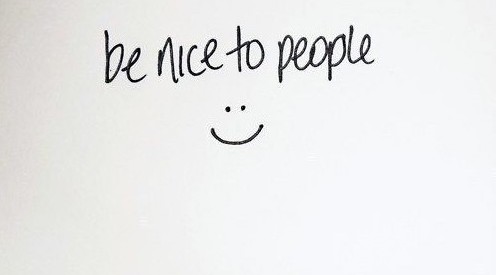 be nice to people